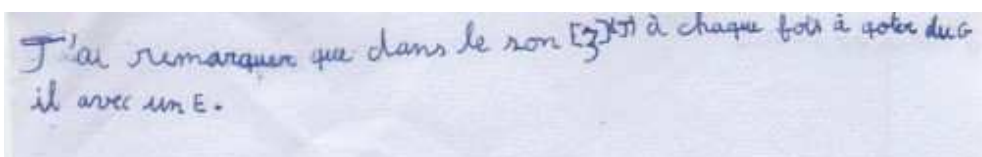 J'ai remarquer que dans le son [ʒ] (J) à chaque fois à goter du G
il avec un E.